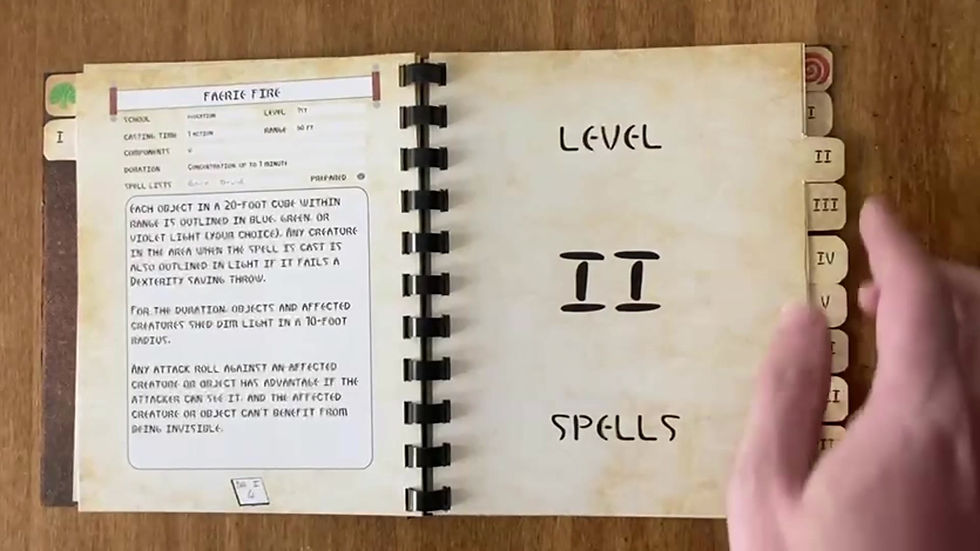 I
FAERIE FIRE
SCHOOL EVOCATION LEVEL 1ST
CASTING TIME 1 ACTION RANGE 60 FT
COMPONENTS V
DURATION CONCENTRATION UP TO 1 MINUTE
SPELL LISTS PREPARED
EACH OBJECT IN A 20-FOOT CUBE WITHIN
RANGE IS OUTLINED IN BLUE, GREEN, OR
VIOLET LIGHT (YOUR CHOICE). ANY CREATURE
IN THE AREA WHEN THE SPELL IS CAST IS
ALSO OUTLINED IN LIGHT IF IT FAILS A
DEXTERITY SAVING THROW.
FOR THE DURATION, OBJECTS AND AFFECTED
CREATURES SHED DIM LIGHT IN A 10-FOOT
RADIUS.
ANY ATTACK ROLL AGAINST AN AFFECTED
CREATURE OR OBJECT HAS ADVANTAGE IF THE
ATTACKER CAN SEE IT, AND THE AFFECTED
CREATURE OR OBJECT CAN'T BENEFIT FROM
BEING INVISIBLE.
LEVEL
II
SPELLS
I
II
III
IV
V